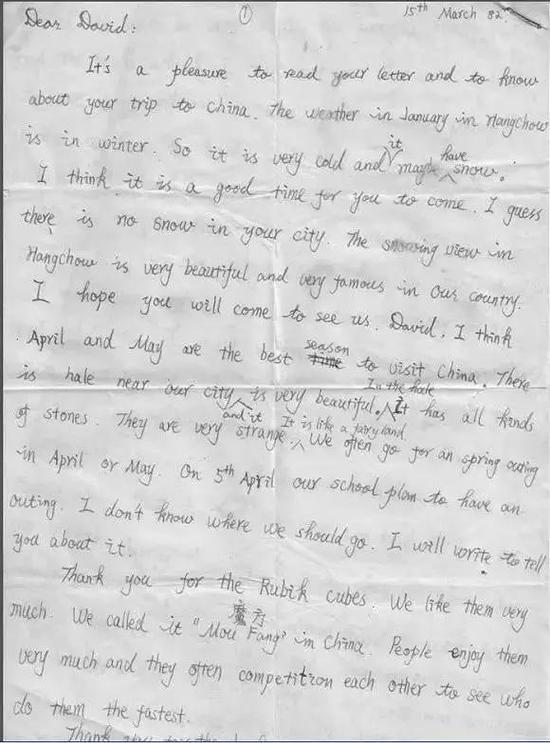 ①
15th March 82.
Dear David:
It's a pleasure to read your letter and to know
about your trip to China. The weather in January in Hangchow
is in winter. So it is very cold and it maybe have snow.
I think it is a good time for you to come. I guess
there is no snow in your city. The snowing view in
Hangchow is very beautiful and very famous in our country.
I hope you will come to see us. David. I think
April and May are the best season to visit China. There
is hale near our city and it is very beautiful. In the hale It has all kinds
of stones. They are very strange. It is like a fairyland We often go for an spring outing
in April or May. On 5th April our school plan to have an
outing. I don't know where we should go. I will write to tell
you about it.
Thank you for the Rubik cubes. We like them very
much. We called it "Mou Fang" 魔方 in China. People enjoy them
very much and they often competition each other to see who
do them the fastest.
Thank you for the